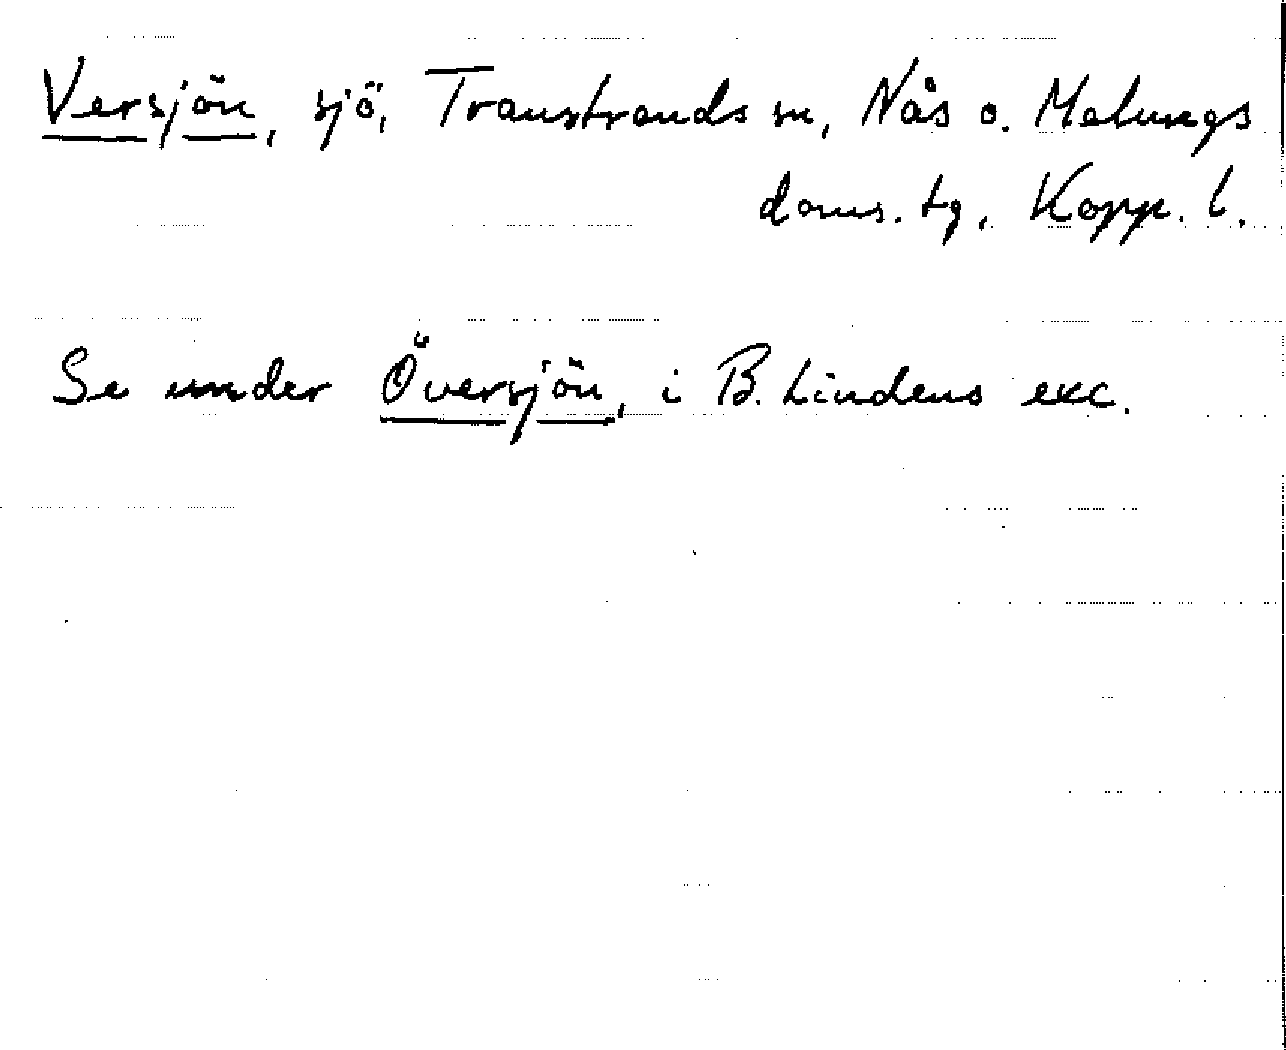 Versjön, sjö, Transtrands sn, Nås o. Malungs
doms. tg, Kopp. l.
Se under Översjön, i B. Lindens exc.